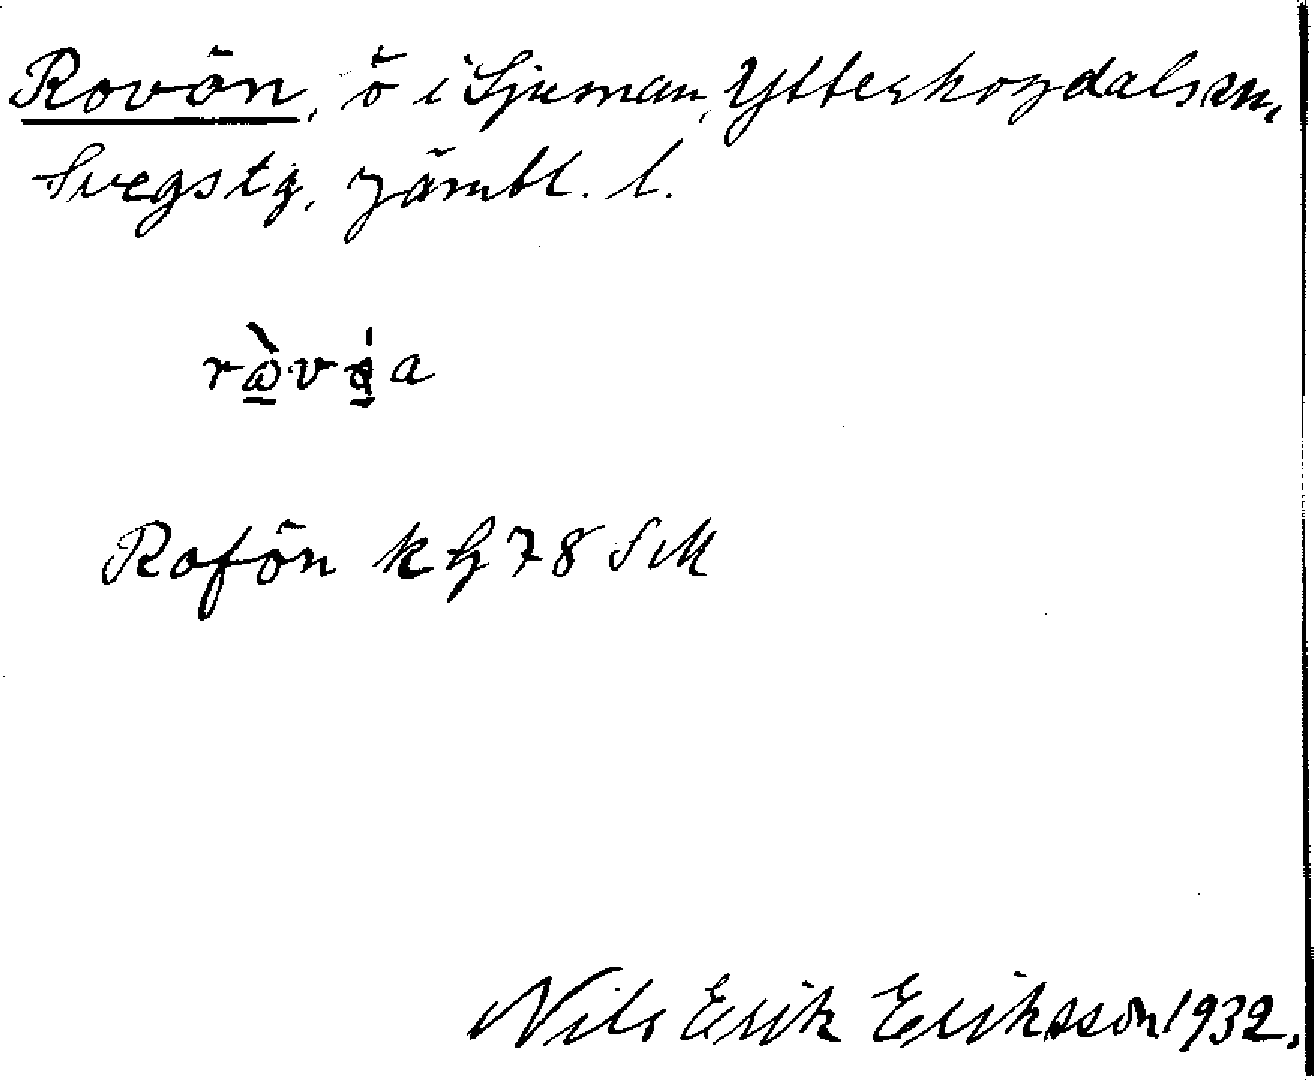 Rovön, ö i Ljusnan, Ytterhogdals sn,
Svegs tg, Jämtl. l.
Rofön kh 78 SM
Nils Erik Eriksson 1932.